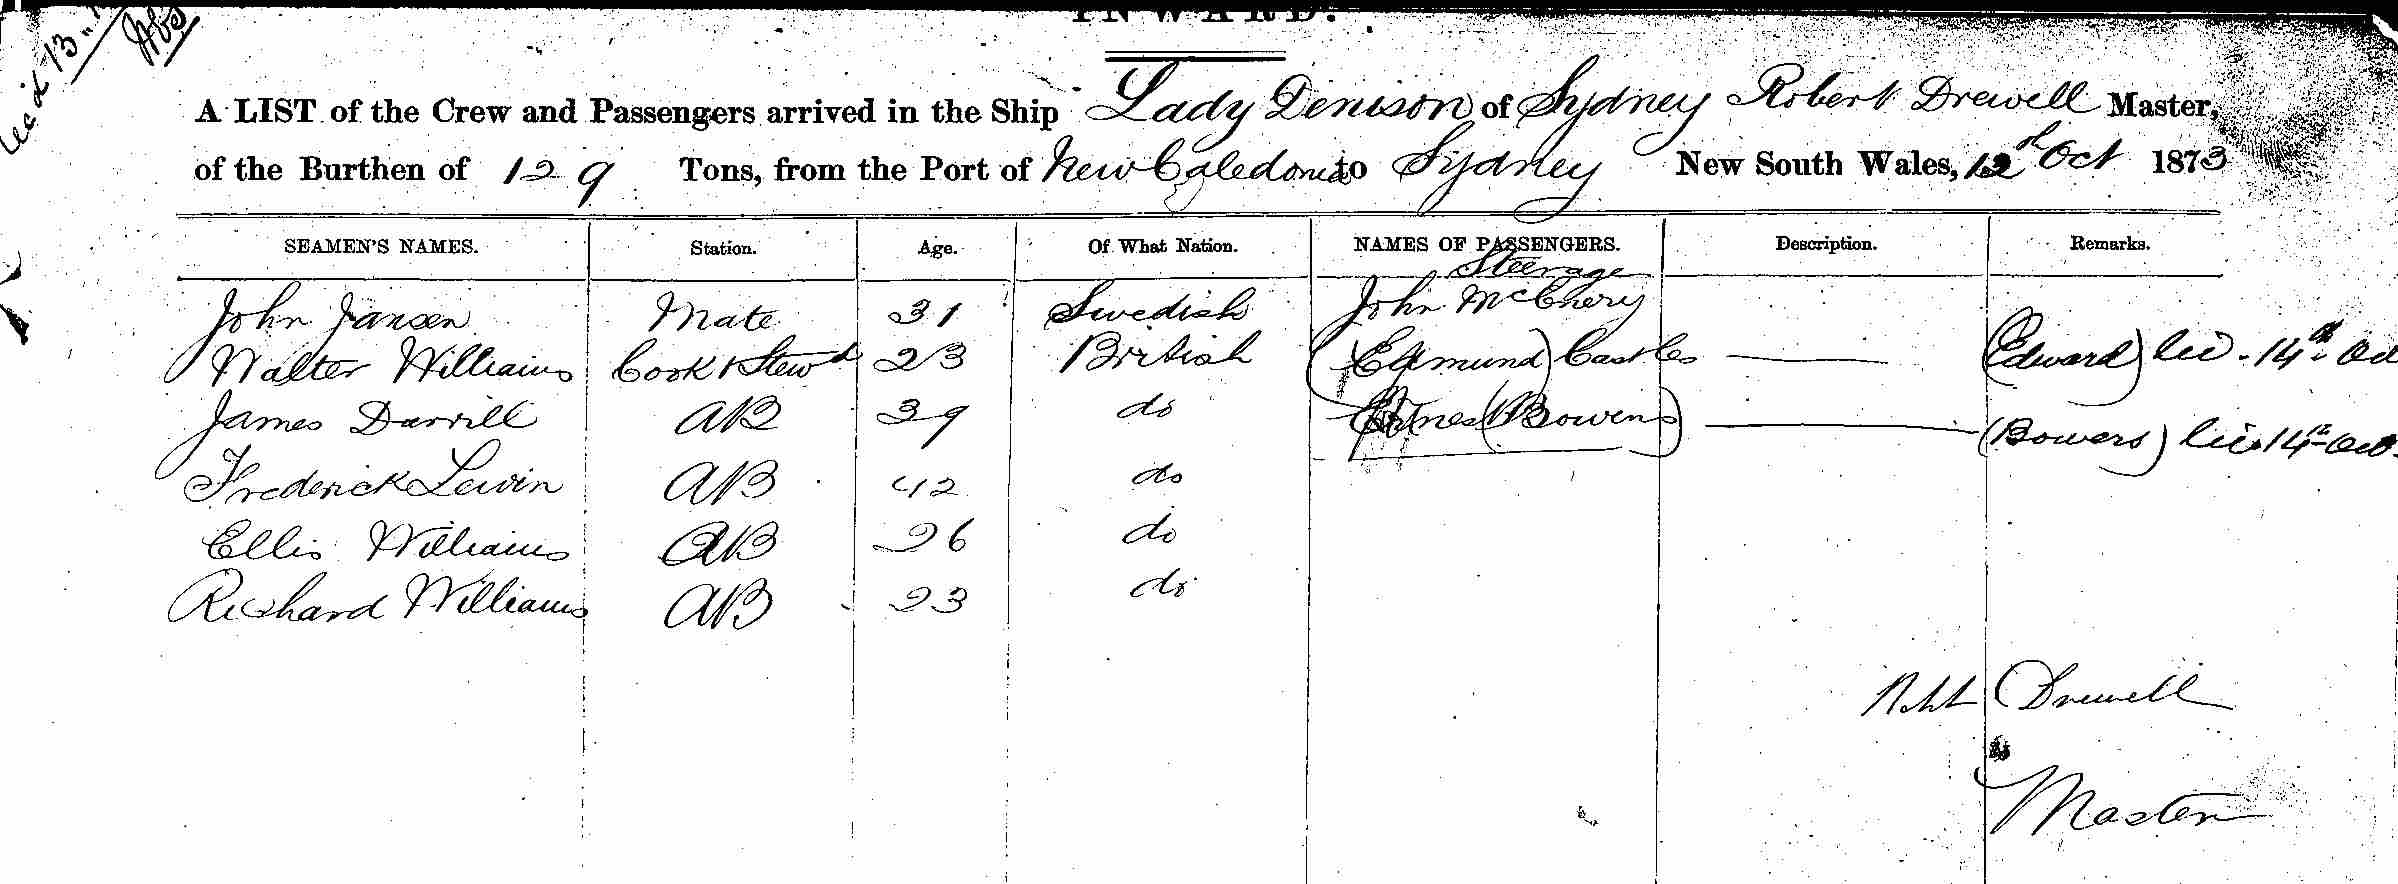 INWARD.
A LIST of the Crew and Passengers arrived in the Ship Lady Denison of Sydney Robert Drewell Master,
of the Burthen of 129 Tons, from the Port of New Caledonia to Sydney New South Wales, 12th Oct 1873
SEAMEN'S NAMES. Station. Age. Of What Nation. NAMES OF PASSENGERS. Description. Remarks.
Steerage
John Jansen Mate 31 Swedish John McEnery
Walter Williams Cook & Stewd 23 British (Edmund) Castles (Edward) 14th
James Darvill AB 39 do (Bowens) (Bowers) 14th
Frederick Lewin AB 42 do
Ellis Williams AB 26 do
Richard Williams AB 23 do
Robt Drewell
Master